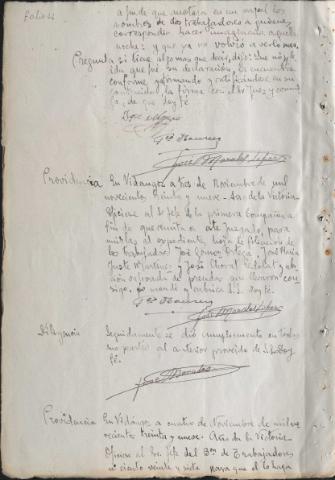 Folio 22
a fin de que anotara en un papel los
nombres de dos trabajadores a quienes
correspondio hacer imaginaria aquella
noche; y que ya no volvió a verlo mas.
Pregunta si tiene algo mas que decir, dijo: Que no; leida
que fué su declaración, la encuentra
conforme afirmando y ratificandose en su
contenido, la firma con el Sr Juez y conmi-
go, de que doy fé.
José Morales
Providencia En Vidángoz a tres de Noviembre de mil
novecientos treinta y nueve. Año de la Victoria.
Oficiese al Sr Jefe de la primera Compañia a
fin de que remita a este Juzgado, para
unirlas al expediente, hojas de filiación de
los trabajadores José Gomez Ortega, José Maria
Juste Martinez y José Chorat y
de prendas que llevaron con-
sigo. Lo mandó y rubrica S.S. doy fé.
José Morales
Diligencia Seguidamente se dió cumplimiento en todas
sus partes al anterior proveido de S.S. doy
fé.
José Morales
Providencia En Vidángoz a cuatro de Noviembre de mil nove-
cientos treinta y nueve. Año de la Victoria.
Oficiese al Sr. Jefe del Bón de Trabajadores
nº ciento veinte y siete para que el